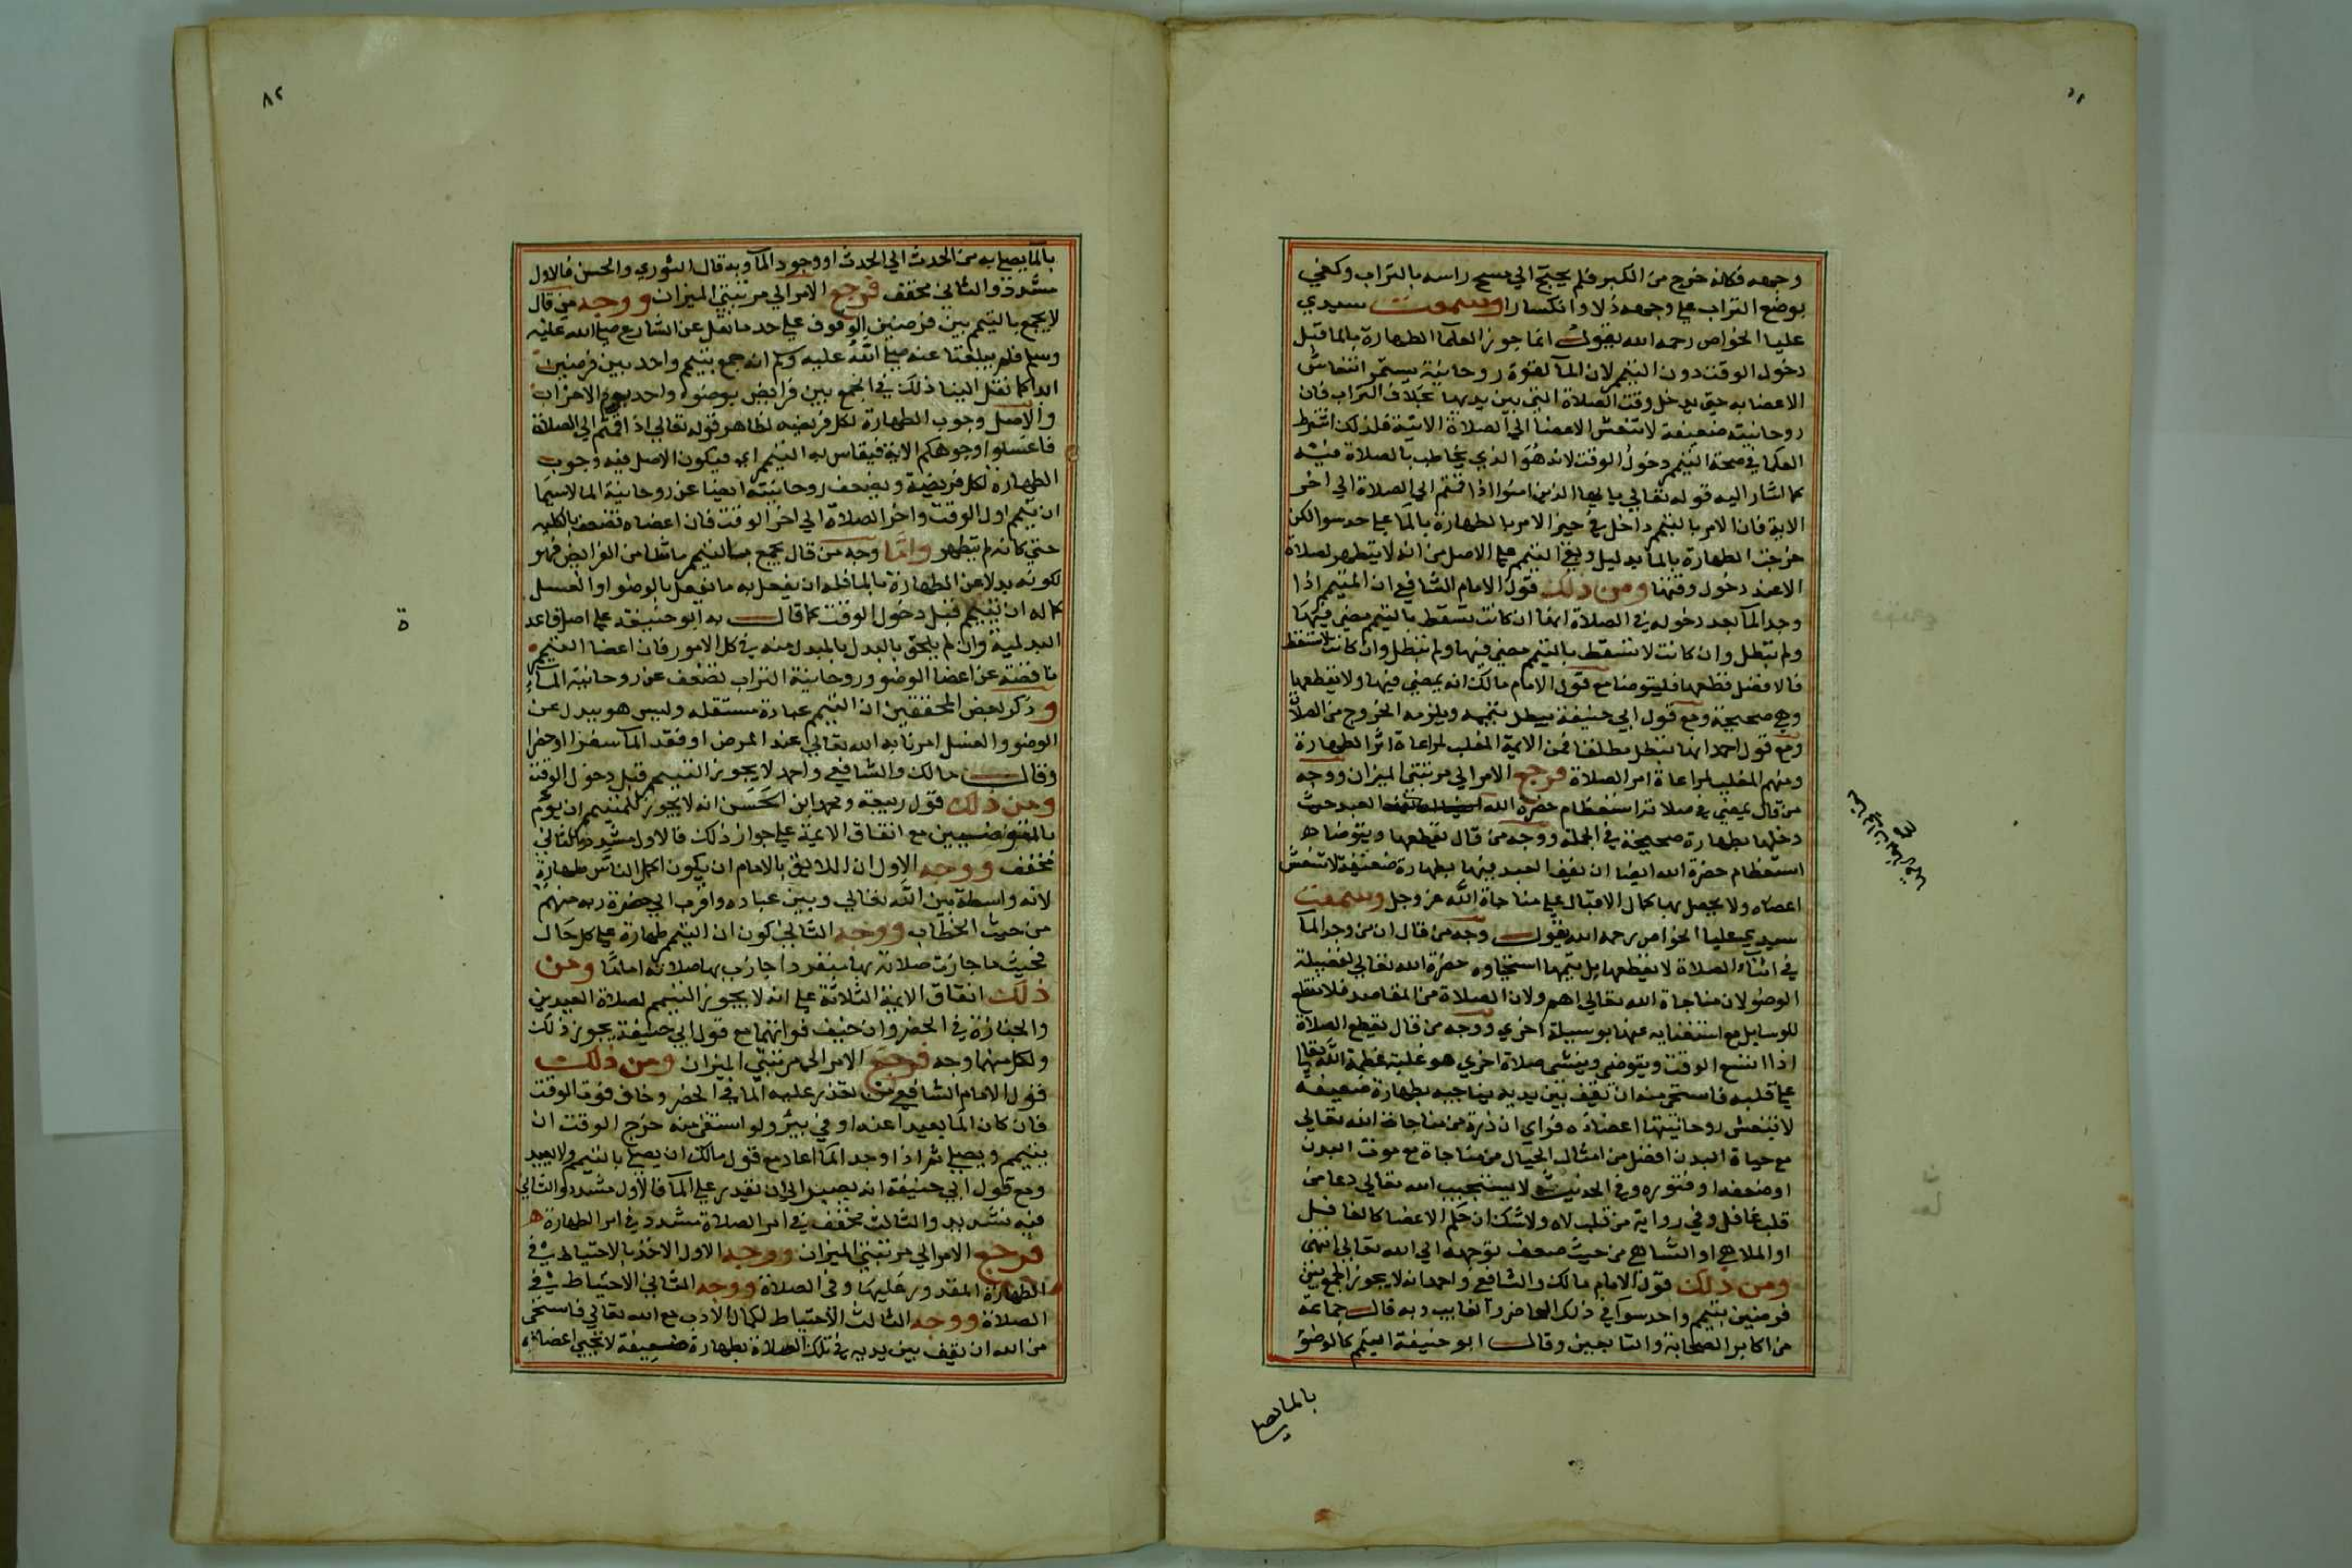 وجهه فكانه خرج من الكبر فلم يحتج الي مسح راسه بالتراب وكفي
بوضع التراب علي وجهه ذلا وانكسارا وسمعت سيدي
عليا الخواص رحمه الله يقول انما جوز العلما الطهارة بالما قبل
دخول الوقت دون التيمم لان المآ لقوة روحانيته يستمر انتعاش
الاعضا به حتي يدخل وقت الصلاة التي بين يديها بخلاف التراب فان
روحانيته ضعيفة لا تنعش الاعضا الي الصلاة الاتية فلذلك اشترط
العلما في صحة التيمم دخول الوقت لانه هو الذي يخاطب بالصلاة فيه
كما اشار اليه قوله تعالي يا ايها الذين امنوا اذا قمتم الي الصلاة الي اخر
الاية فان الامر بالتيمم داخل في حيز الامر بالطهارة بالمآ علي حد سوا لكن
خرجت الطهارة بالما بدليل وبقي التيمم علي الاصل من انه لا يتطهر لصلاة
الا عند دخول وقتها ومن ذلك قول الامام الشافعي ان المتيمم اذا
وجد المآ بعد دخوله في الصلاة انها ان كانت تسقط بالتيمم مضي فيها
ولم تبطل وان كانت لا تسقط بالتيمم مضي فيها ولم تبطل وان كانت تسقط
فالافضل قطعها فليتوضا مع قول الامام مالك انه يمضي فيها ولا يقطعها
وهي صحيحة ومع قول ابي حنيفة يبطل تيممه ويلزمه الخروج من الصلاة
ومع قول احمد انها تبطل مطلقا فمن الايمة المغلب لمراعاة اثر الطهارة
ومنهم المغلب لمراعاة امر الصلاة فرجع الامر الي مرتبتي الميزان ووجه
من قال يمضي في صلاته استعظام حضرة الله العبد حيث
دخلها بطهارة صحيحة في الجملة ووجه من قال يقطعها ويتوضا
استعظام حضرة الله ايضا ان يقف العبد فيها بطهارة ضعيفة لا تنعش
اعضاه ولا يحصل بها كمال الاقبال علي مناجاة الله عز وجل وسمعت
سيدي عليا الخواص رحمه الله يقول وجه من قال ان من وجد المآ
في اثناء الصلاة لا يقطعها بل يتمها استحياوه حضرة الله تعالي لفضيلة
الوضو لان مناجاة الله تعالي اهم ولان الصلاة من المقاصد فلا تقطع
للوسايل مع استغنايه عنها بوسيلة اخري ووجه من قال يقطع الصلاة
اذا اتسع الوقت ويتوضي وينشي صلاة اخري هو غلبة عظمة الله تعالي
علي قلبه فاستحي منه ان يقف بين يديه يناجيه بطهارة ضعيفة
لا تنعش روحانيتها اعضاوه فراي ان ذرة من مناجاة الله تعالي
مع حياة البدن افضل من امثال الجبال من مناجاة مع موت البدن
او ضعفه او فتوره وفي الحديث لا يستجيب الله تعالي دعا من
قلب غافل وفي رواية من قلب لاه ولا شك ان حكم الاعضا كالغافل
او الملاهي او الساهي من حيث ضعف توجهه الي الله تعالي انتهي
ومن ذلك قول الامام مالك والشافعي واحمد انه لا يجوز الجمع بين
فرضين بتيمم واحد سوآ في ذلك الحاضر والغايب وبه قال جماعة
من اكابر الصحابة والتابعين وقال ابو حنيفة التيمم كالوضو
بالما يصلي
٨٢
بالمآ يصلي به من الحدث الي الحدث او وجود المآ وبه قال الثوري والحسن فالاول
مشدد والثاني مخفف فرجع الامر الي مرتبتي الميزان ووجه من قال
لا يجمع بالتيمم بين فرضين الوقوف علي حد ما نقل عن الشارع صلي الله عليه
وسلم فلم يبلغنا عنه صلي الله عليه وسلم انه جمع بتيمم واحد بين فرضين
ابدا كما نقل الينا ذلك في الجمع بين فرايض بوضوء واحد يوم الاحزاب
والاصل وجوب الطهارة لكل فريضة لظاهر قوله تعالي اذا قمتم الي الصلاة
فاغسلوا وجوهكم الاية فيقاس به التيمم اي فيكون الاصل فيه وجوب
الطهارة لكل فريضة وبضعف روحانيته ايضا عن روحانية الما لاسيما
ان تيمم اول الوقت واخر الصلاة الي اخر الوقت فان اعضاه تضعف بالكلية
حتي كانه لم يتطهر واما وجه من قال يجمع بالتيمم ما شا من الفرايض فهو
لكونه بدلا عن الطهارة بالما فله ان يفعل به ما يفعل بالوضو او الغسل
كما له ان يتيمم قبل دخول الوقت كما قال به ابو حنيفة علي اصل قاعدة
البدلية وان لم يلحق بالبدل بالمبدل منه في كل الامور فان اعضا التيمم
ناقصة عن اعضا الوضو وروحانية التراب تضعف عن روحانية المآء
وذكر بعض المحققين ان التيمم عبادة مستقلة وليس هو ببدل عن
الوضو والغسل امرنا به الله تعالي عند المرض او فقد المآ سفرا او حضرا
وقال مالك والشافعي واحمد لا يجوز التيمم قبل دخول الوقت
ومن ذلك قول ربيعة ومحمد ابن الحسن انه لا يجوز للمتيمم ان يوم
بالمتوضيين مع اتفاق الايمة علي جواز ذلك فالاول مشدد والثاني
مخفف ووجه الاول ان اللايق بالامام ان يكون اكمل الناس طهارة
لانه واسطة بين الله تعالي وبين عباده واقرب الي حضرة ربه منهم
من حيث الخطاب ووجه الثاني كون ان التيمم طهارة علي كل حال
فحيث ما جازت صلاته بها منفردا جازت بها صلاته اماما ومن
ذلك اتفاق الايمة الثلاثة علي انه لا يجوز التيمم لصلاة العيدين
والجنازة في الحضر وان خيف فواتهما مع قول ابي حنيفة يجوز ذلك
ولكل منهما وجه فرجع الامر الي مرتبتي الميزان ومن ذلك
قول الامام الشافعي من تعذر عليه المآ في الحضر وخاف فوت الوقت
فان كان المآ بعيدا عنه او في بير ولو استقي منه خرج الوقت ان
يتيمم ويصلي ثم اذا وجد المآ اعاد مع قول مالك ان يصلي بالتيمم ولا يعيد
ومع قول ابي حنيفة انه يصبر الي ان يقدر علي المآ فالاول مشدد والثاني
فيه تشديد والثالث مخفف في امر الصلاة مشدد في امر الطهارة
فرجع الامر الي مرتبتي الميزان ووجه الاول الاخذ بالاحتياط في
الطهارة المقدور عليها وفي الصلاة ووجه الثاني الاحتياط في
الصلاة ووجه الثالث الاحتياط لكمال الادب مع الله تعالي فاستحي
من الله ان يقف بين يديه في تلك الصلاة بطهارة ضعيفة لا تحيي اعضاه